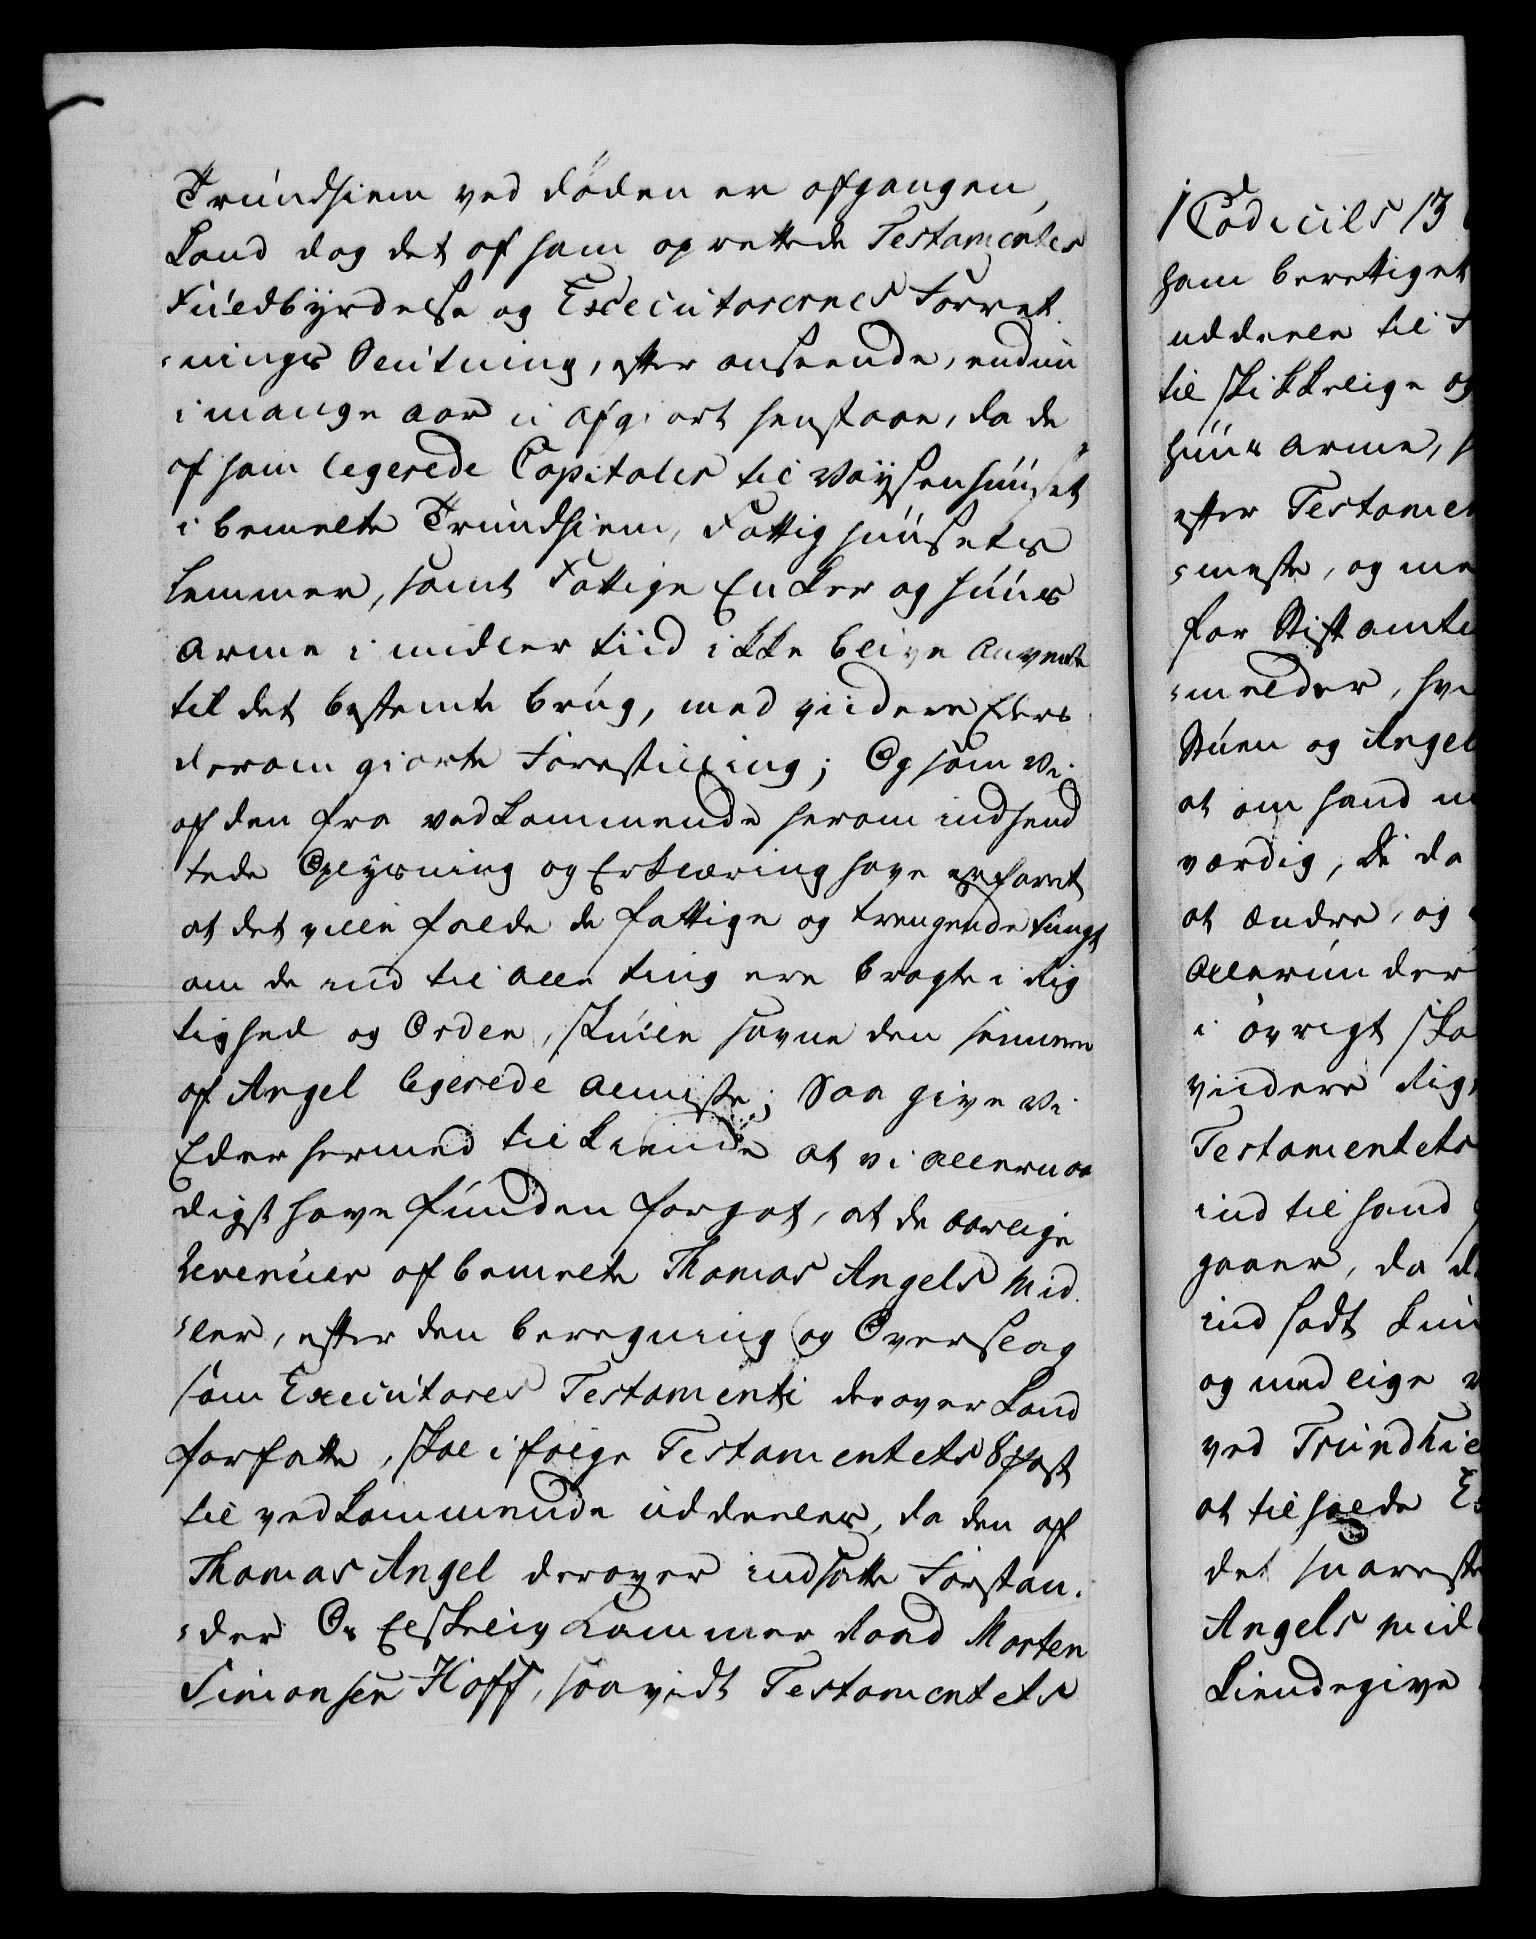 Trundhiem ved døden er afgangen,
kand dog det af ham oprettede Testamentes
Fuldbyrdelse og Executorernes Forret
nings Slutning, efter anseende, endnu
i mange aar u-afgiort henstaae, da de
af ham legerede Capitaler til Vaysenhuuset
i bemelte Trundhiem, Fattighuusets
Lemmer, samt Fattige Enker og Huus
arme i midlertiid ikke blive anvendte
til det bestemte brug, med viidere Eders
derom giorte Forestilling; Og som Vi
af den fra vedkommende herom indsend
tede Oplysning og Erklæring have erfaret
at det ville falde de fattige og trengende tungt
om de ind til alle ting ere bragte i Rig
tighed og Orden, skulle savne den
af Angel legerede Almisse; Saa give Vi
Eder hermed tilkiende at vi allernaa
digst have funden forgot, at de aarlige
Revenuer af bemelte Thomas Angels Mid
ler, efter den beregning og Overslag
som Executores Testamenti derover kand
forfatte, skal ifølge Testamentets 8 Post
til vedkommende uddeeles, da den af
Thomas Angel derover indsatte Forstan
der Os Elskelig Kammer Raad Morten
Simonsen Hoff, saavidt Testamentets
Codicils 13
ham berettiget
uddeele til
til skikkelige og
huus arme,
efter Testamen
meste, og me
for Stiftamt
melder,
Stuen og Angel
at om hand
værdig, da
at ændre, og
Allerunder
i øvrigt ska
viidere Rig
Testamentets
ind til hand
gaaer, da
indsadt kun
og med lige
ved Trundhie
at tilholde
det snareste
Angels Mid
kiendegive